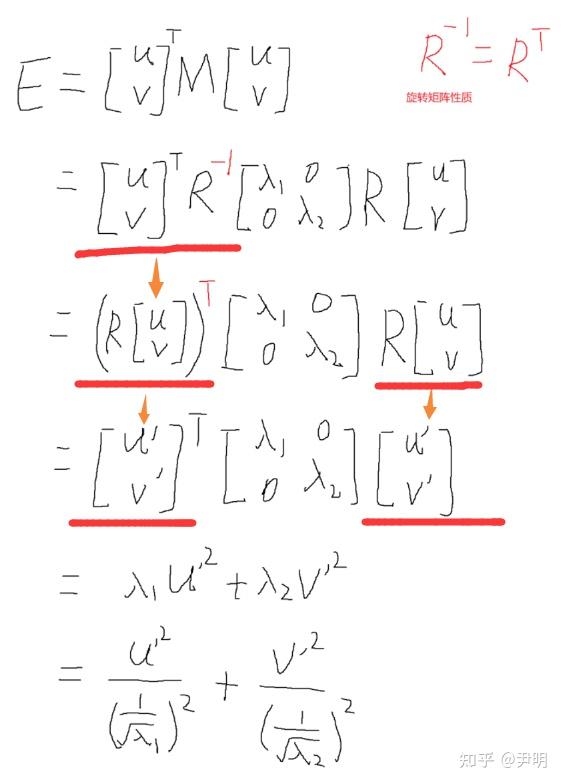 E = [u v]ᵀ M [u v]
R⁻¹ = Rᵀ
旋转矩阵性质
= [u v]ᵀ R⁻¹ [λ₁ 0 0 λ₂] R [u v]
= (R [u v])ᵀ [λ₁ 0 0 λ₂] R [u v]
= [u' v']ᵀ [λ₁ 0 0 λ₂] [u' v']
= λ₁u'² + λ₂v'²
= u'² / (1/√λ₁)² + v'² / (1/√λ₂)²
知乎 @尹明